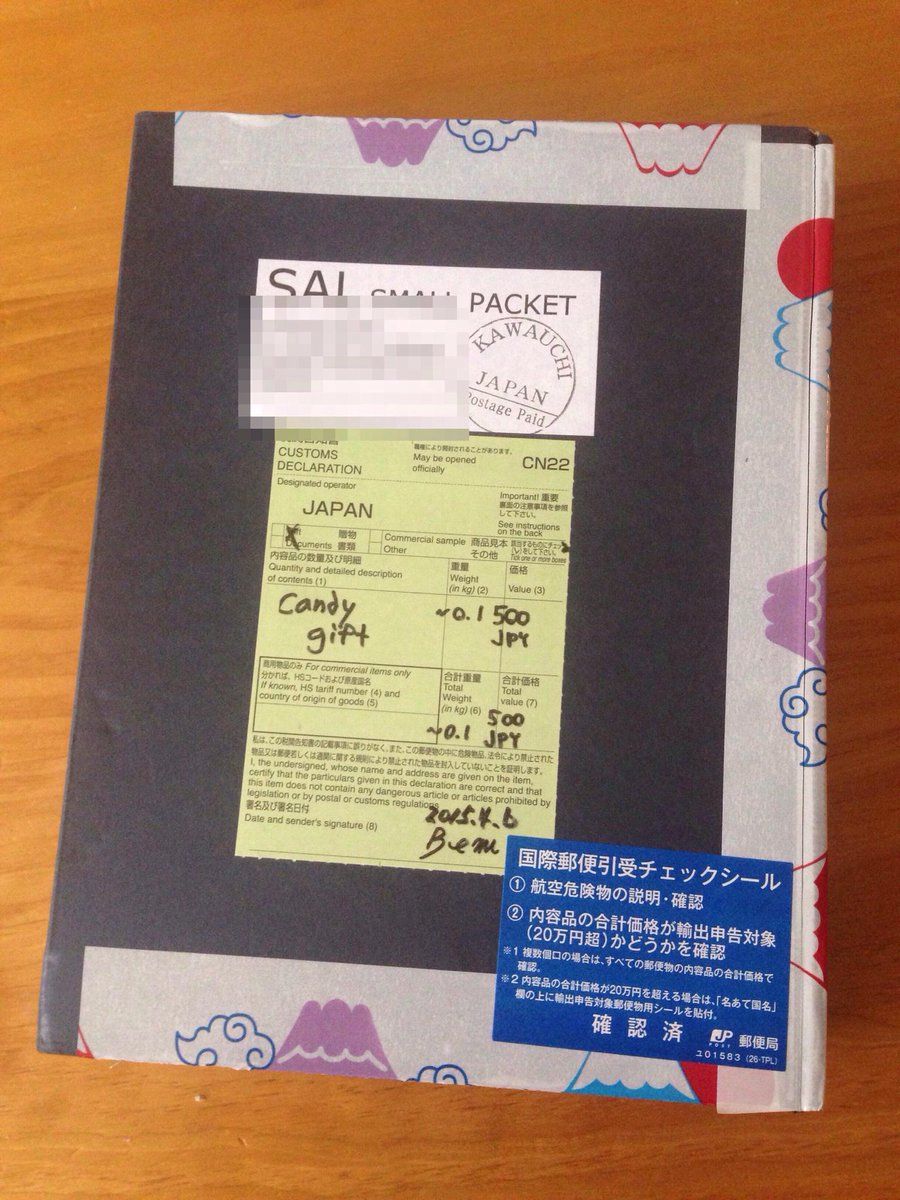 SAL SMALL PACKET
KAWAUCHI
JAPAN
Postage Paid
CUSTOMS
DECLARATION
職権により開封されることがあります。
May be opened
officially
CN22
Designated operator
JAPAN
Important! 重要
裏面の注意事項を参照
して下さい。
See instructions
on the back
贈物
Documents 書類
Commercial sample 商品見本
Other その他
該当するものにチェック
(✓)をして下さい。
Tick one or more boxes
内容品の数量及び明細
Quantity and detailed description
of contents (1)
重量
Weight
(in kg) (2)
価格
Value (3)
Candy
gift
~0.1
500
JPY
商用物品のみ For commercial items only
分かれば、HSコードおよび原産国名
If known, HS tariff number (4) and
country of origin of goods (5)
合計重量
Total
Weight
(in kg) (6)
~0.1
合計価格
Total
value (7)
500
JPY
私は、この税関告知書の記載事項に誤りがなく、また、この郵便物の中に危険物品、法令により禁止された
物品又は郵便若しくは通関に関する規則により禁止された物品を封入していないことを証明します。
I, the undersigned, whose name and address are given on the item,
certify that the particulars given in this declaration are correct and that
this item does not contain any dangerous article or articles prohibited by
legislation or by postal or customs regulations.
署名及び署名日付
Date and sender's signature (8)
2015.4.6
国際郵便引受チェックシール
① 航空危険物の説明・確認
② 内容品の合計価格が輸出申告対象
(20万円超)かどうかを確認
※1 複数個口の場合は、すべての郵便物の内容品の合計価格で
確認。
※2 内容品の合計価格が20万円を超える場合は、「名あて国名」
欄の上に輸出申告対象郵便物用シールを貼付。
確認済
JP POST 郵便局
ユ01583 (26-TPL)